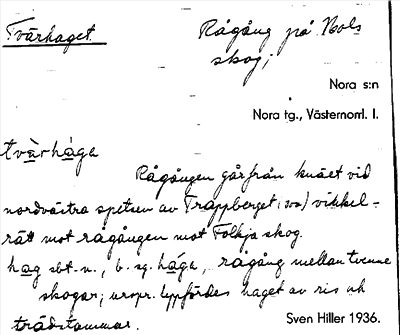 Tvärhaget
Rågång på Nols
skog;
Nora s:n
Nora tg., Västernorrl. l.
tvàrhàga
Rågången går från knäet vid
nordvästra spetsen av Trappberget, vinkel-
rätt mot rågången mot Folkja skog.
hag sbt. n., b. sg. hàga, rågång mellan tvenne
skogar; urspr. uppfördes haget av ris och
trädstammar.
Sven Hiller 1936.